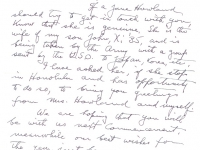 If a Jane Howland
should try to get in touch with you
know that she is genuine. She is the
wife of my son John X. '35, and is
being taken by the Army with a group
sent by the USO to Japan Korea etc.
I have asked her, if she stops
in Honolulu and has opportunity
to do so, to bring you greetings
from Mrs. Howland and myself.
We are hoping that you will
be with us next Commencement,
meanwhile our best wishes for